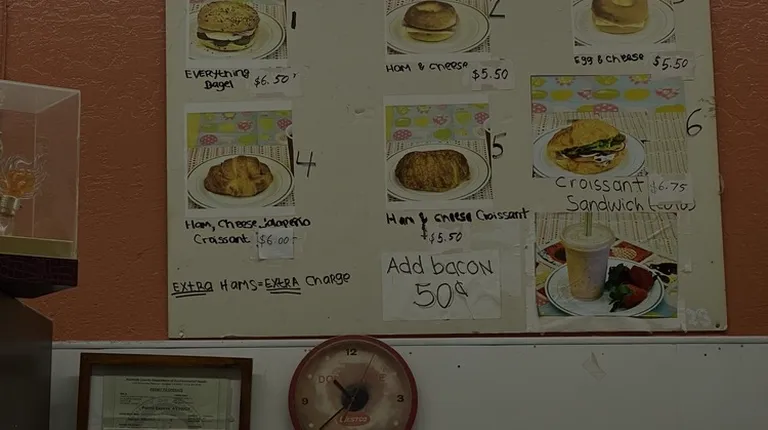 1
2
EVERYthing
Bagel $6.50
Ham & cheese
$5.50
Egg & cheese $5.50
4
5
6
Ham, cheese Jalapeño
Croissant $6.00
Ham & cheese Croissant
$5.50
Croissant $6.75
Sandwich
EXTRA Hams=EXTRA Charge
Add bacon
50¢
12
3
9